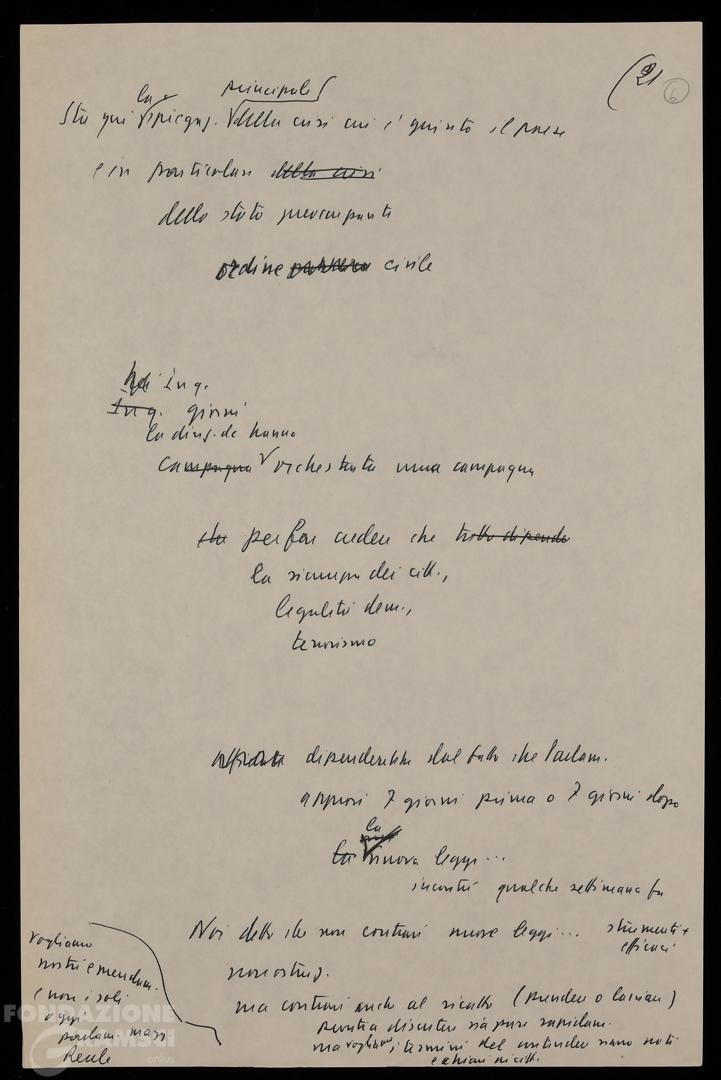 (21 6
la principale
Sta qui spiegaz. della crisi cui è giunto il paese
e in particolare della crisi
dello stato preoccupante
ordine civile
In q.
In q. giorni
la dirig. dc hanno
campagna orchestrata una campagna
che per far credere che tutto dipende
la sicurezza dei citt.,
legalità dem.,
terrorismo
dipenderebbe dal fatto che Parlam.
approvi 7 giorni prima o 7 giorni dopo
la
la nuova legge...
incontri qualche settimana fa
Noi detto che non contrari nuove leggi... strumenti +
efficaci
ma contrari anche al ricatto (prendere o lasciare)
Pronti a discutere sia pure rapidam.
ma vogliamo i termini del contendere siano noti
e chiari ai citt.
Vogliamo
nostri emendam.
e non i soli
oggi
parlam. magg
Reale
FONDAZIONE
GRAMSCI
onlus